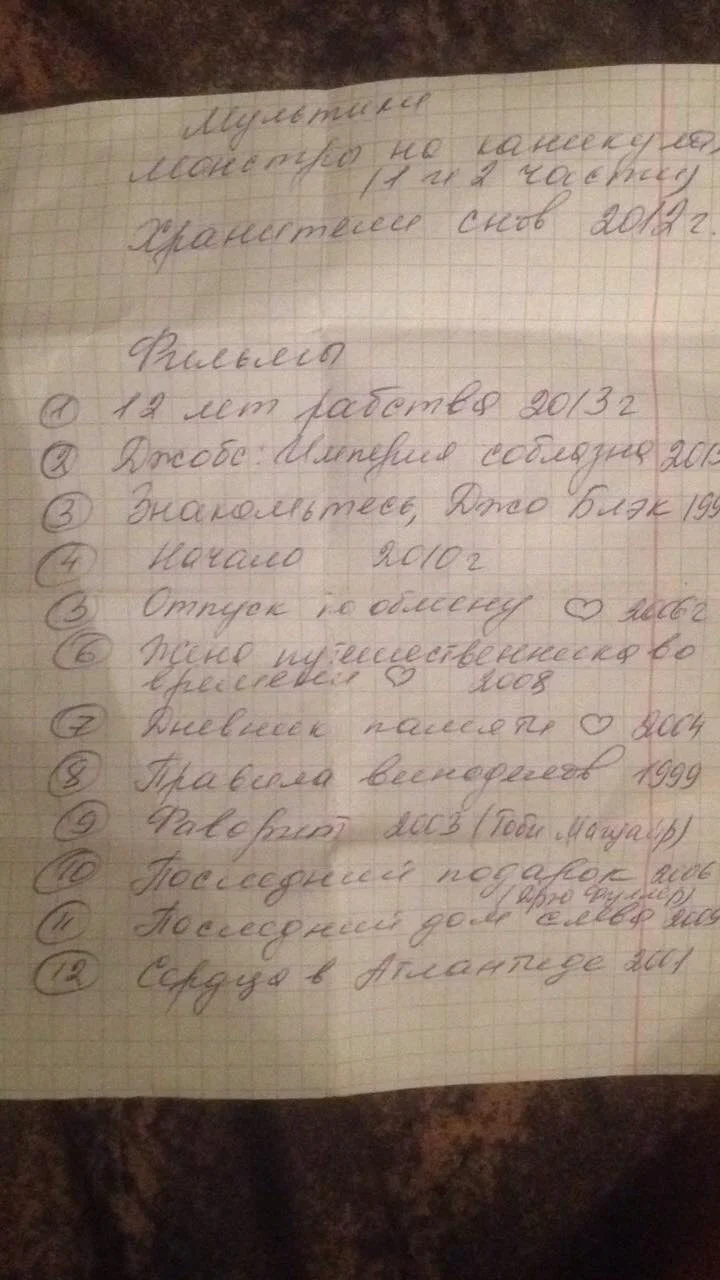 Мультики
Монстры на каникулах
(1 и 2 части)
Хранители снов 2012 г.
Фильмы
① 12 лет рабства 2013 г
② Джобс: Империя соблазна 2013
③ Знакомьтесь, Джо Блэк 199
④ Начало 2010 г
⑤ Отпуск по обмену ♡ 2006 г
⑥ Жена путешественника во
времени ♡ 2008
⑦ Дневник памяти ♡ 2004
⑧ Правила виноделов 1999
⑨ Фаворит 2003 (Тоби Магуайр)
⑩ Последний подарок 2006
(Дрю Фуллер)
⑪ Последний дом слева 2009
⑫ Сердца в Атлантиде 2001